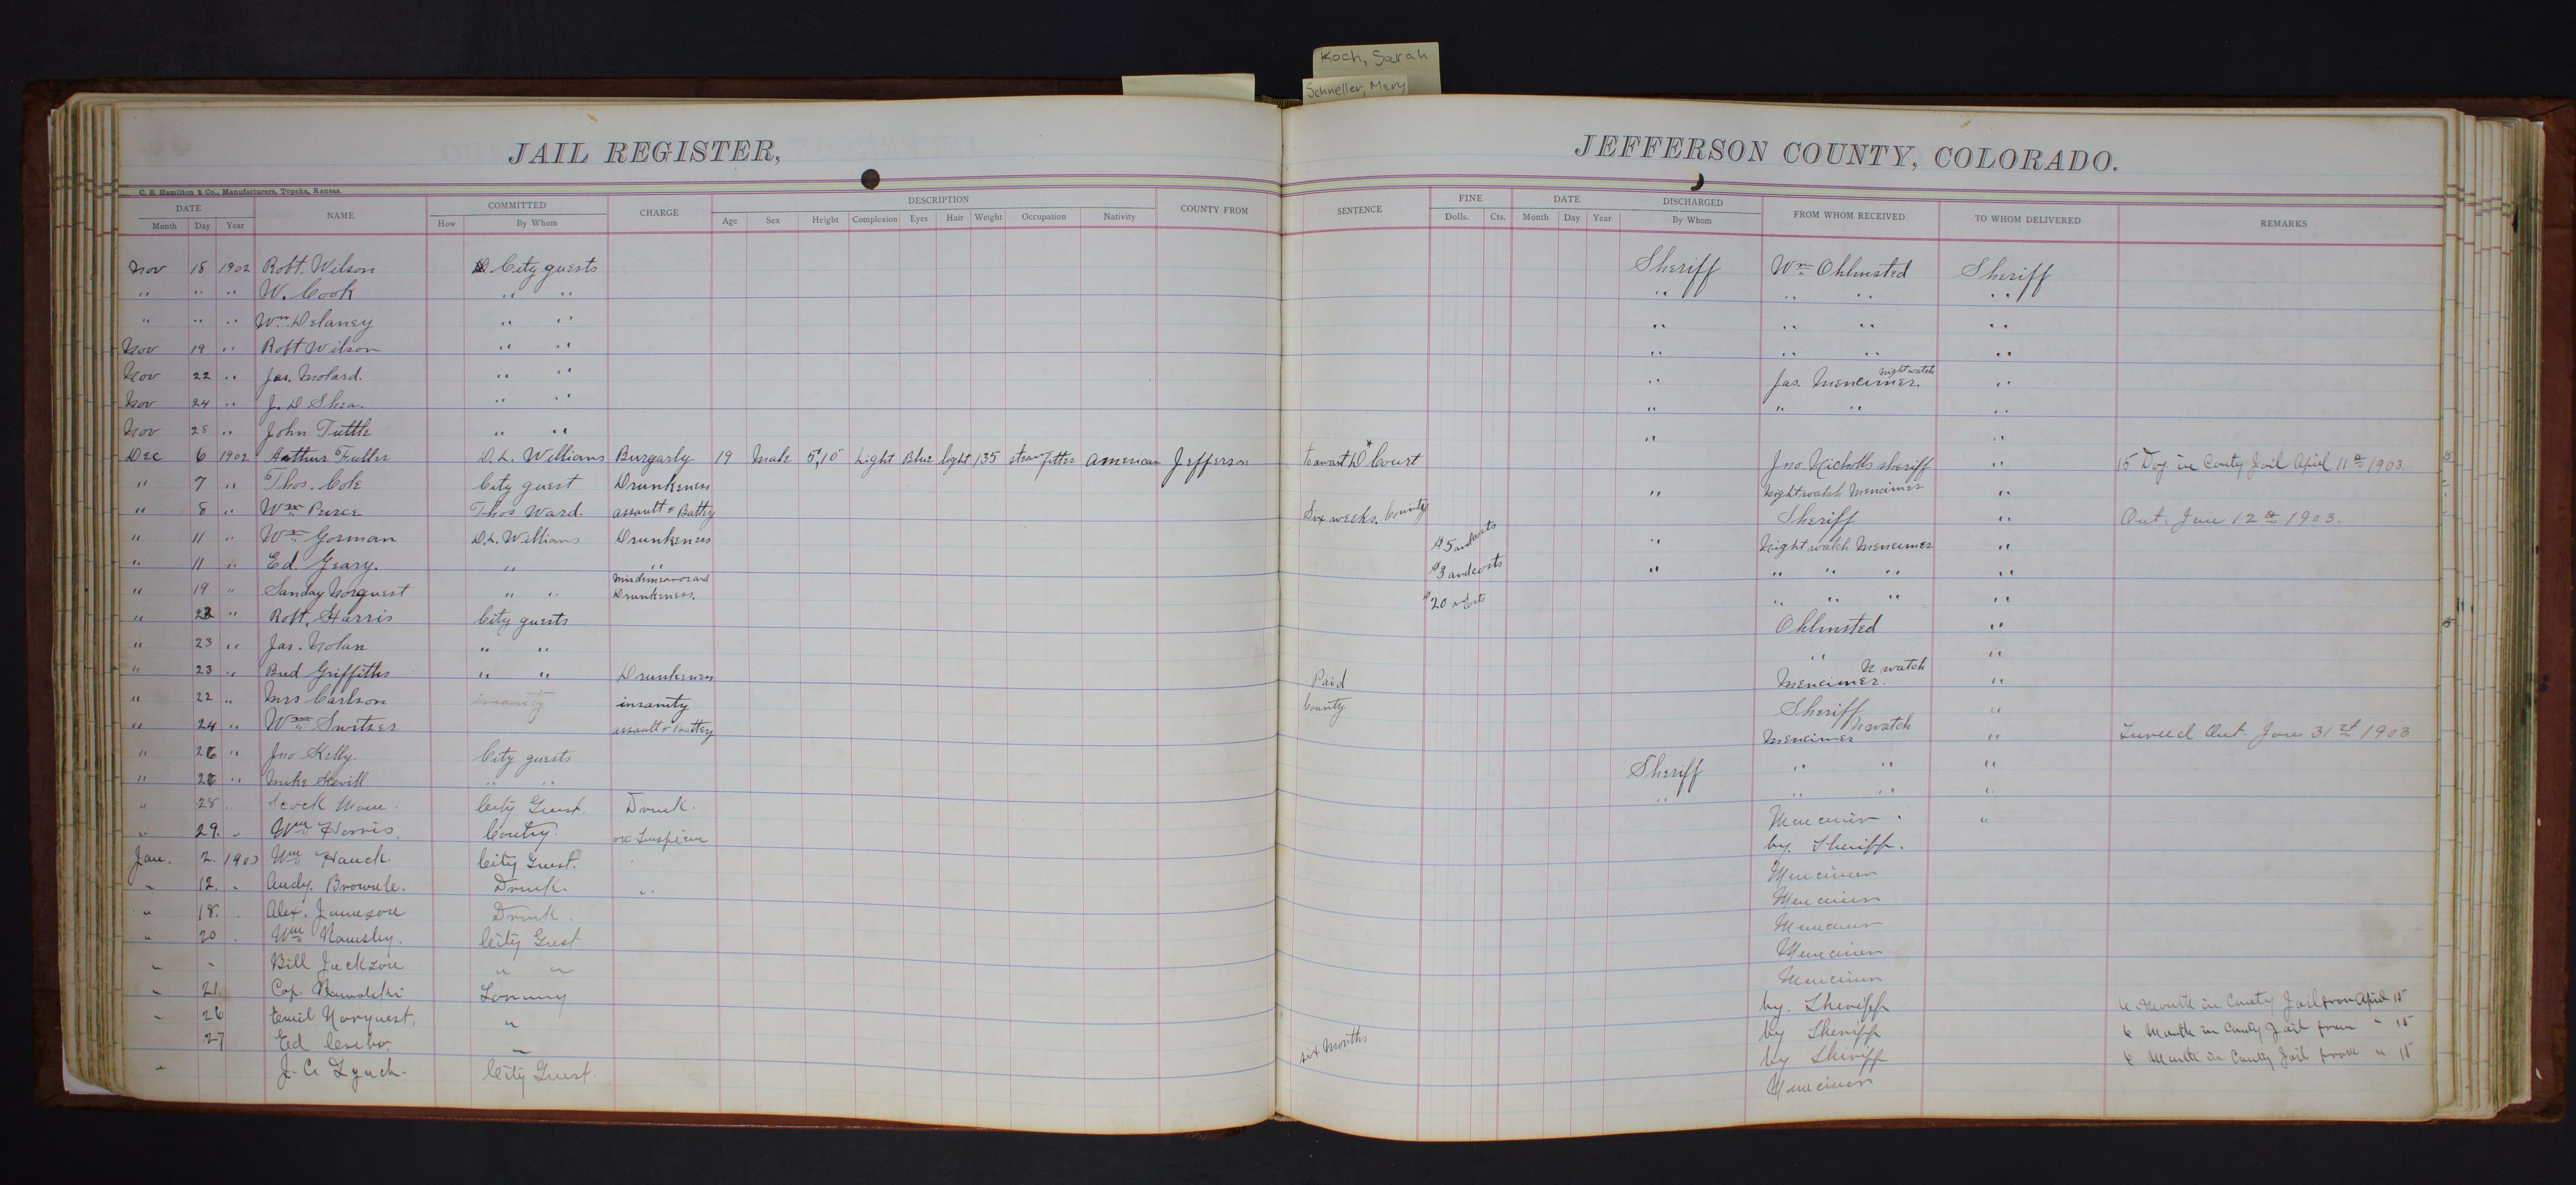 Koch, Sarah
Schneller, Mary
JAIL REGISTER,
JEFFERSON COUNTY, COLORADO.
C. B. Hamilton & Co., Manufacturers, Topeka, Kansas.
DATE NAME COMMITTED CHARGE DESCRIPTION COUNTY FROM SENTENCE FINE DATE DISCHARGED FROM WHOM RECEIVED TO WHOM DELIVERED REMARKS
Month Day Year How By Whom Age Sex Height Complexion Eyes Hair Weight Occupation Nativity Dolls. Cts. Month Day Year By Whom
Nov 18 1902 Robt. Wilson City guests Sheriff Wm Ohlmsted Sheriff
" " " W. Cook " " " " " "
" " " Wm. Delaney " " " " " "
Nov 19 " Robt Wilson " " " " " "
Nov 22 " Jas. Molard. " " " Jas. Mencimer. Night watch "
Nov 24 " J. D Shea. " " " " " "
Nov 28 " John Tuttle " " " "
Dec 6 1902 Arthur Fuller D. L. Williams Burgarly 19 Male 5',10" Light Blue light 135 steam fitter American Jefferson to await D Court Jno. Nicholls sheriff " 15 Day in Conty Jail April 11th 1903.
" 7 " Thos. Cole City guest Drunkeness " Nightwatch Mencimer "
" 8 " Wm Purce Thos Ward. assault & Battry Six weeks. County Sheriff " Out. Jan 12th 1903.
" 11 " Wm Gorman D. L. Williams Drunkeness $5 and costs " Night watch Mencimer "
" 11 " Ed. Geary. " " $3 and costs " " " " "
" 19 " Sanday Norquest " " Misdemeanor and Drunkeness. $20 and costs " " " "
" 22 " Robt. Harris City guests Ohlmsted "
" 23 " Jas. Nolan " " " "
" 23 " Bud Griffiths " " Drunkeness Paid Mencimer. N watch "
" 22 " Mrs Carlson insanity insanity County Sheriff "
" 24 " Wm Switzer assault & battery Mencimer N watch " Turned Out. Jan 31st 1903
" 26 " Jno Kelly. City guests Sheriff " " "
" 26 " Mike " " " " " "
" 28 " City Guest. Drunk. Mencimer "
" 29. " Wm Harris. Contry. on Suspicion by. Sheriff.
Jan. 2. 1903 Wm Hauck. City Guest. Mencimer
" 12. " Andy. Brownle. Drunk. " Mencimer
" 18. Alex. Jameson Drunk. Mencimer
" 20 Wm City Gust Mencimer
" " Bill Jackson " " Mencimer
" 21 Cap. by. Sheriff 6 Month in County Jail from April 15
" 26 Emil Norquest. " by Sheriff 6 Month in County Jail from " 15
27 Ed " six Months by Sheriff 6 Month in County Jail from " 15
" J. C. Lynch. City Guest. Mencimer